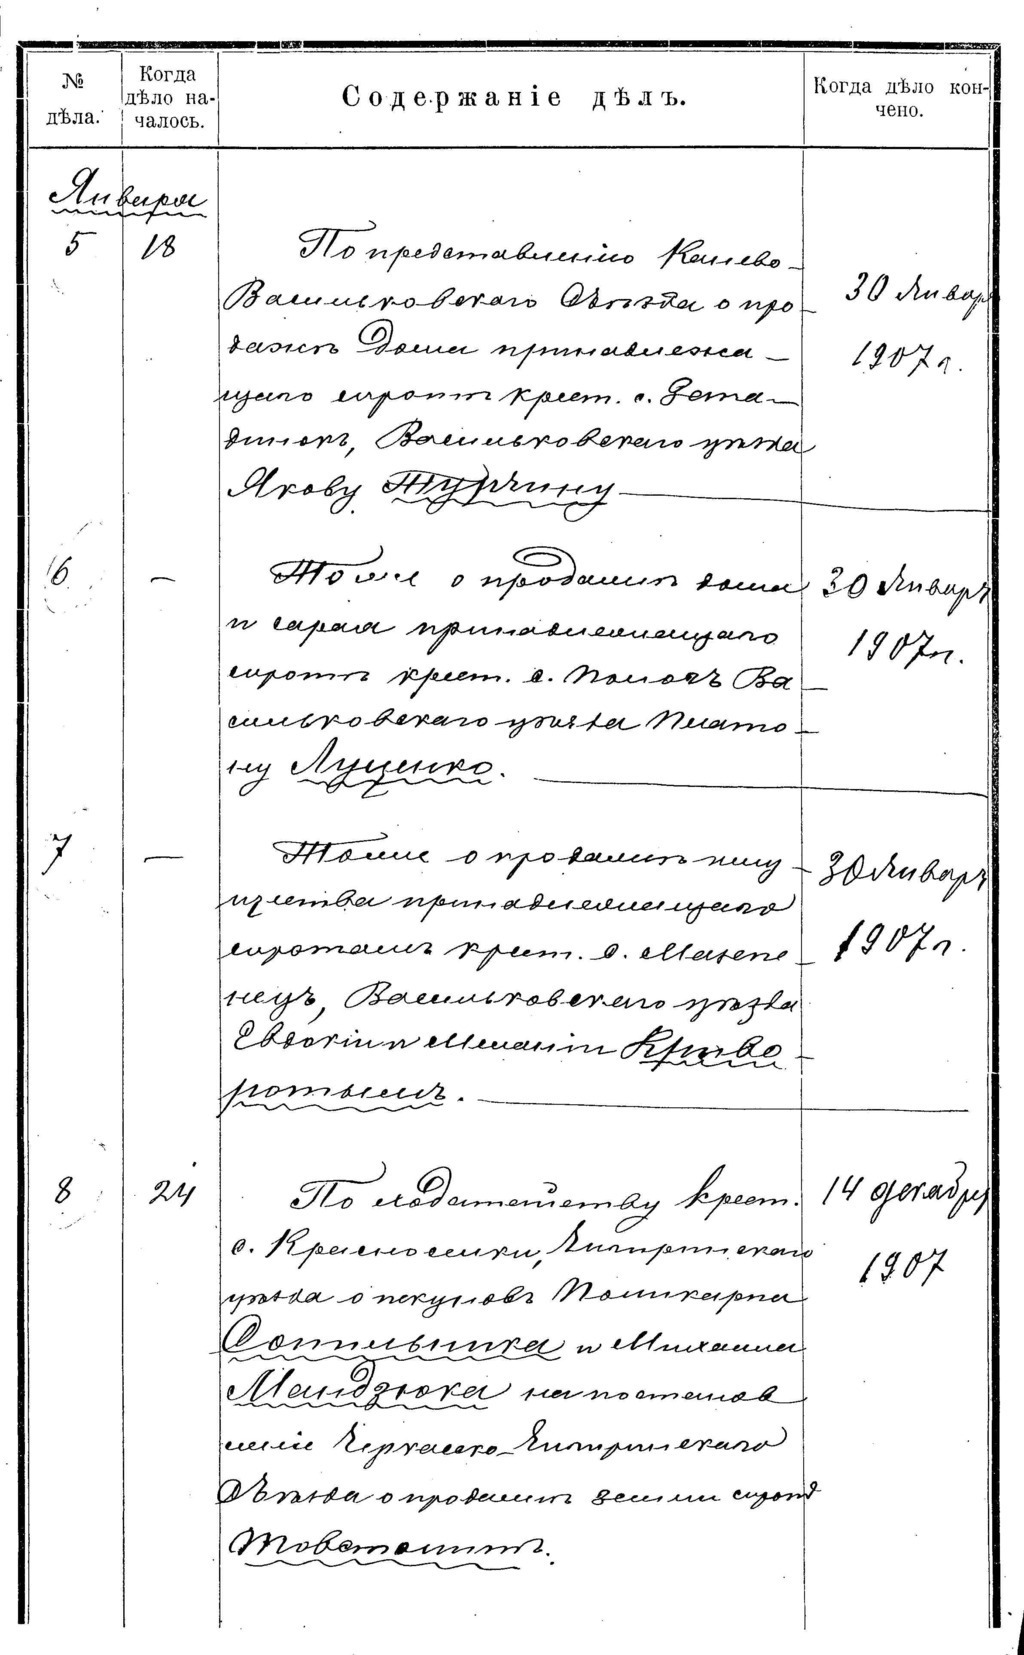 № дѣла.
Когда дѣло началось.
Содержаніе дѣлъ.
Когда дѣло кончено.
Января
5 18 По представленію Канево-
Васильковскаго Съѣзда о про-
дажѣ дома принадлежа-
щаго сиротѣ крест. с.
Васильковскаго уѣзда
Якову Турчину
30 Января
1907 г.
6 — Тоже о продажѣ дома
и сарая принадлежащаго
сиротѣ крест. с. Пологъ Ва-
сильковскаго уѣзда Плато-
ну Луценко.
30 Января
1907 г.
7 — Тоже о продажѣ иму-
щества принадлежащаго
сиротамъ крест. с. Мазепе-
нецъ, Васильковскаго уѣзда
Евдокіи и Меланіи Криво-
ротымъ.
30 Января
1907 г.
8 24 По ходатайству крест.
с. Красноселки, Чигиринскаго
уѣзда опекуновъ Поликарпа
Сотильника и Михаила
Мандзюка на постанов
леніе Черкасско-Чигиринскаго
Съѣзда о продажѣ земли сирот
14 декабря
1907